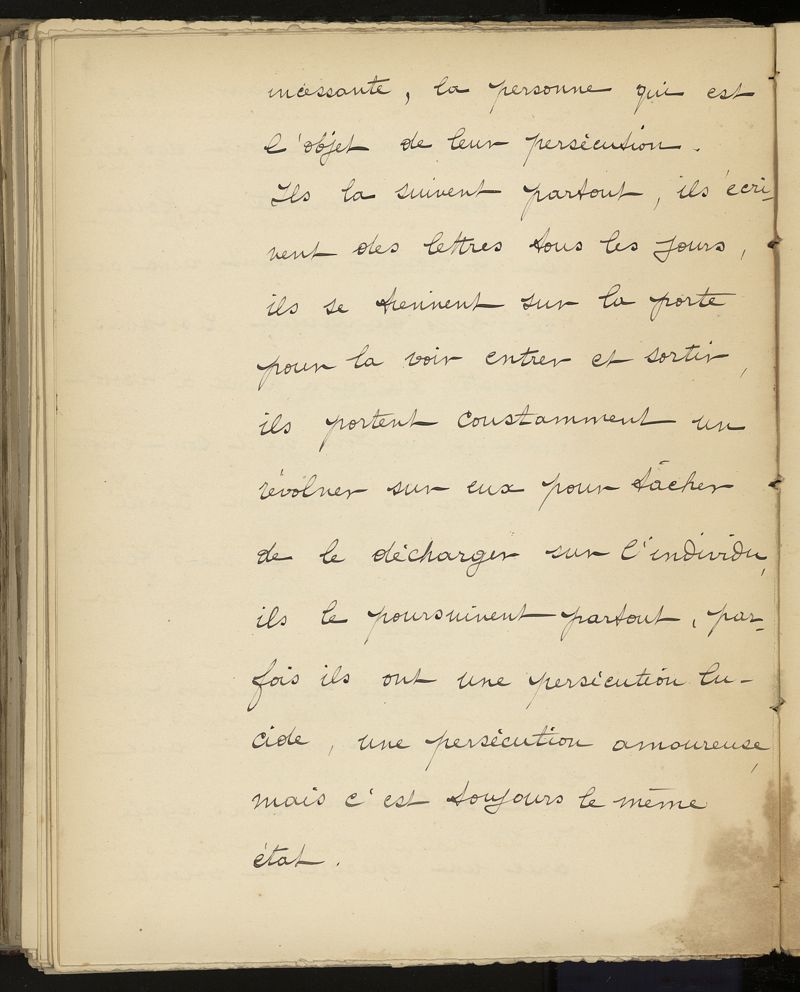 incessante, la personne qui est
l'objet de leur persécution.
Ils la suivent partout, ils écri-
vent des lettres tous les jours,
ils se tiennent sur la porte
pour la voir entrer et sortir,
ils portent constamment un
révolver sur eux pour tâcher
de le décharger sur l'individu,
ils le poursuivent partout, par-
fois ils ont une persécution lu-
cide, une persécution amoureuse,
mais c'est toujours le même
état.